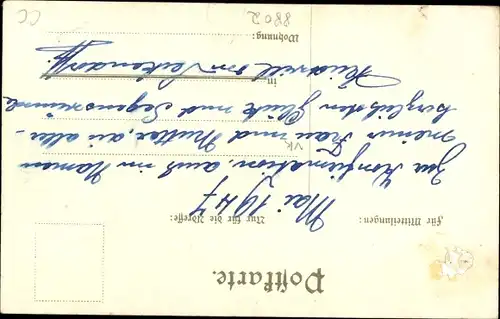 Postkarte.
Für Mitteilungen:
Nur für die Adresse:
Mai 1947
Zur Konfirmation, auch im Namen
meiner Frau und Mutter, die aller-
herzlichsten Glück und Segenswünsche
in
Wohnung:
Vk
8802
CC